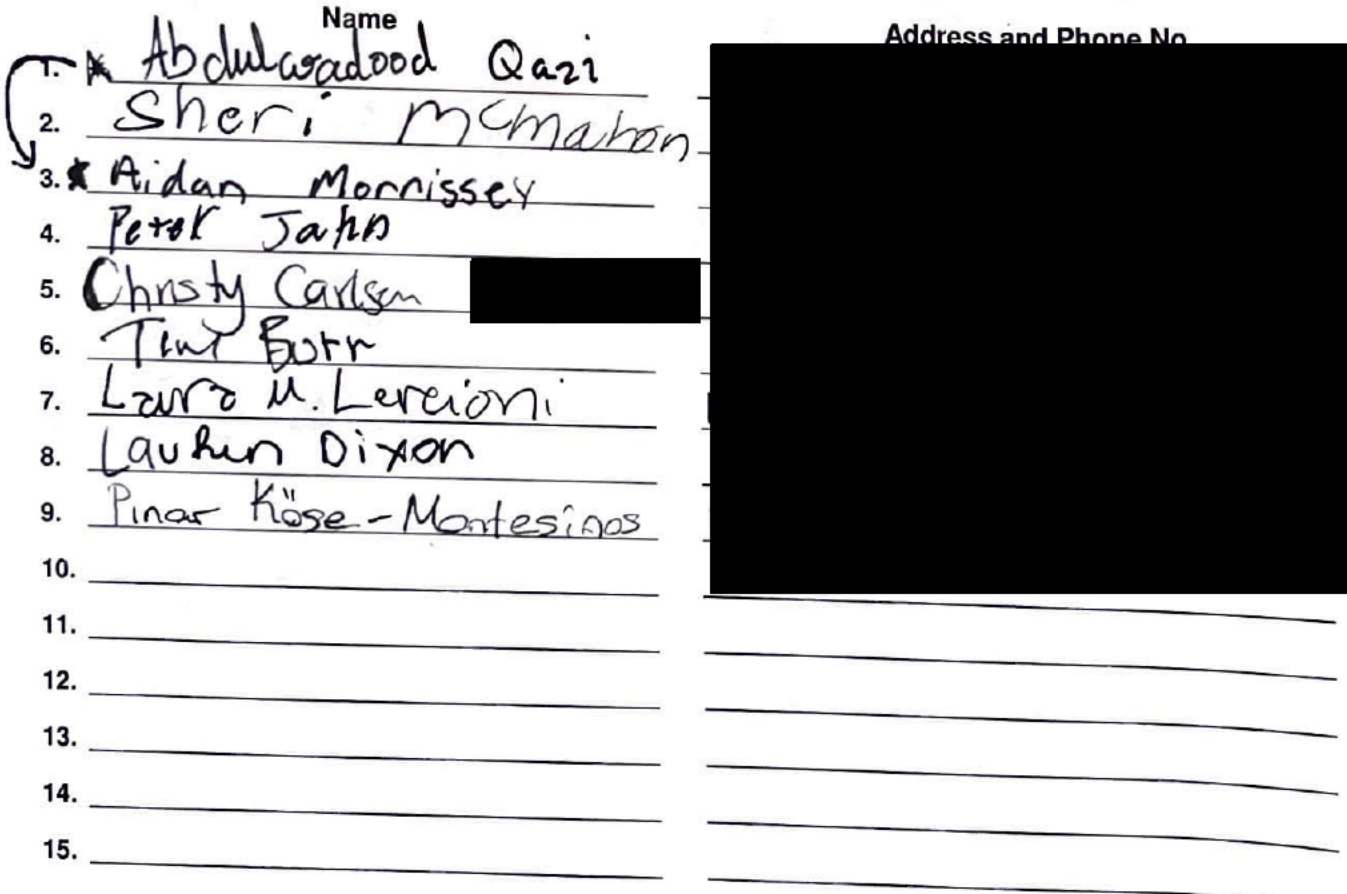 Name Address and Phone No
1. * Abdulwadood Qazi
2. Sheri McMahon
3. * Aidan Morrissey
4. Peter Jahn
5. Christy Carlsen
6. Burr
7. Laura M. Lercioni
8. Lauren Dixon
9. Pinar Köse-Montesinos
10.
11.
12.
13.
14.
15.